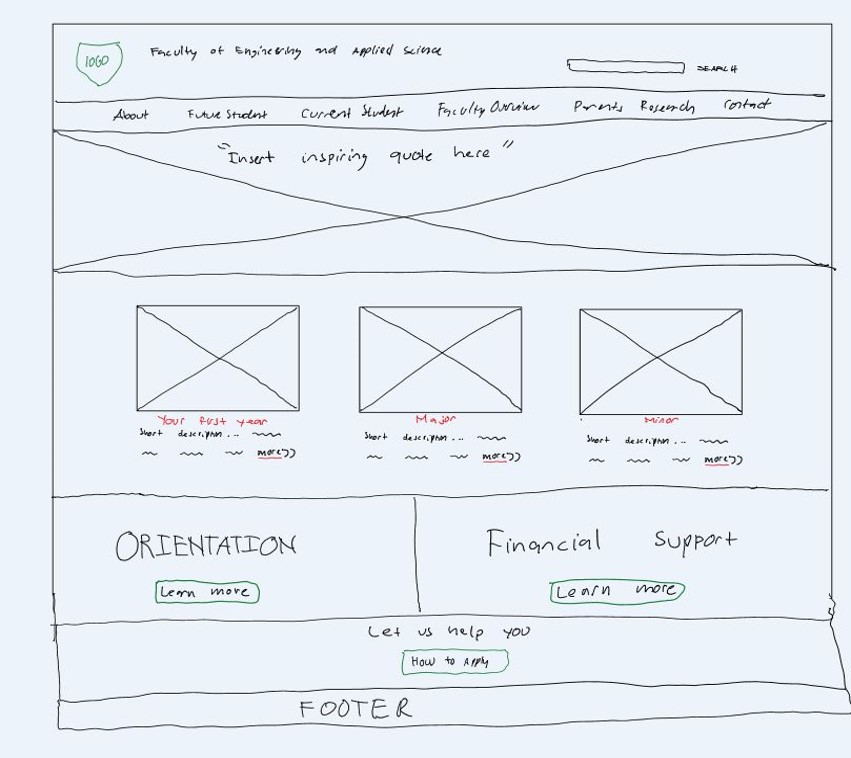 LOGO
Faculty of Engineering and Applied Science
SEARCH
About Future Student Current Student Faculty Overview Parents Research Contact
"Insert inspiring quote here"
Your first year
short description...
more>>
Major
short description...
more>>
Minor
short description...
more>>
ORIENTATION
Learn more
Financial Support
Learn more
Let us help you
How to Apply
FOOTER